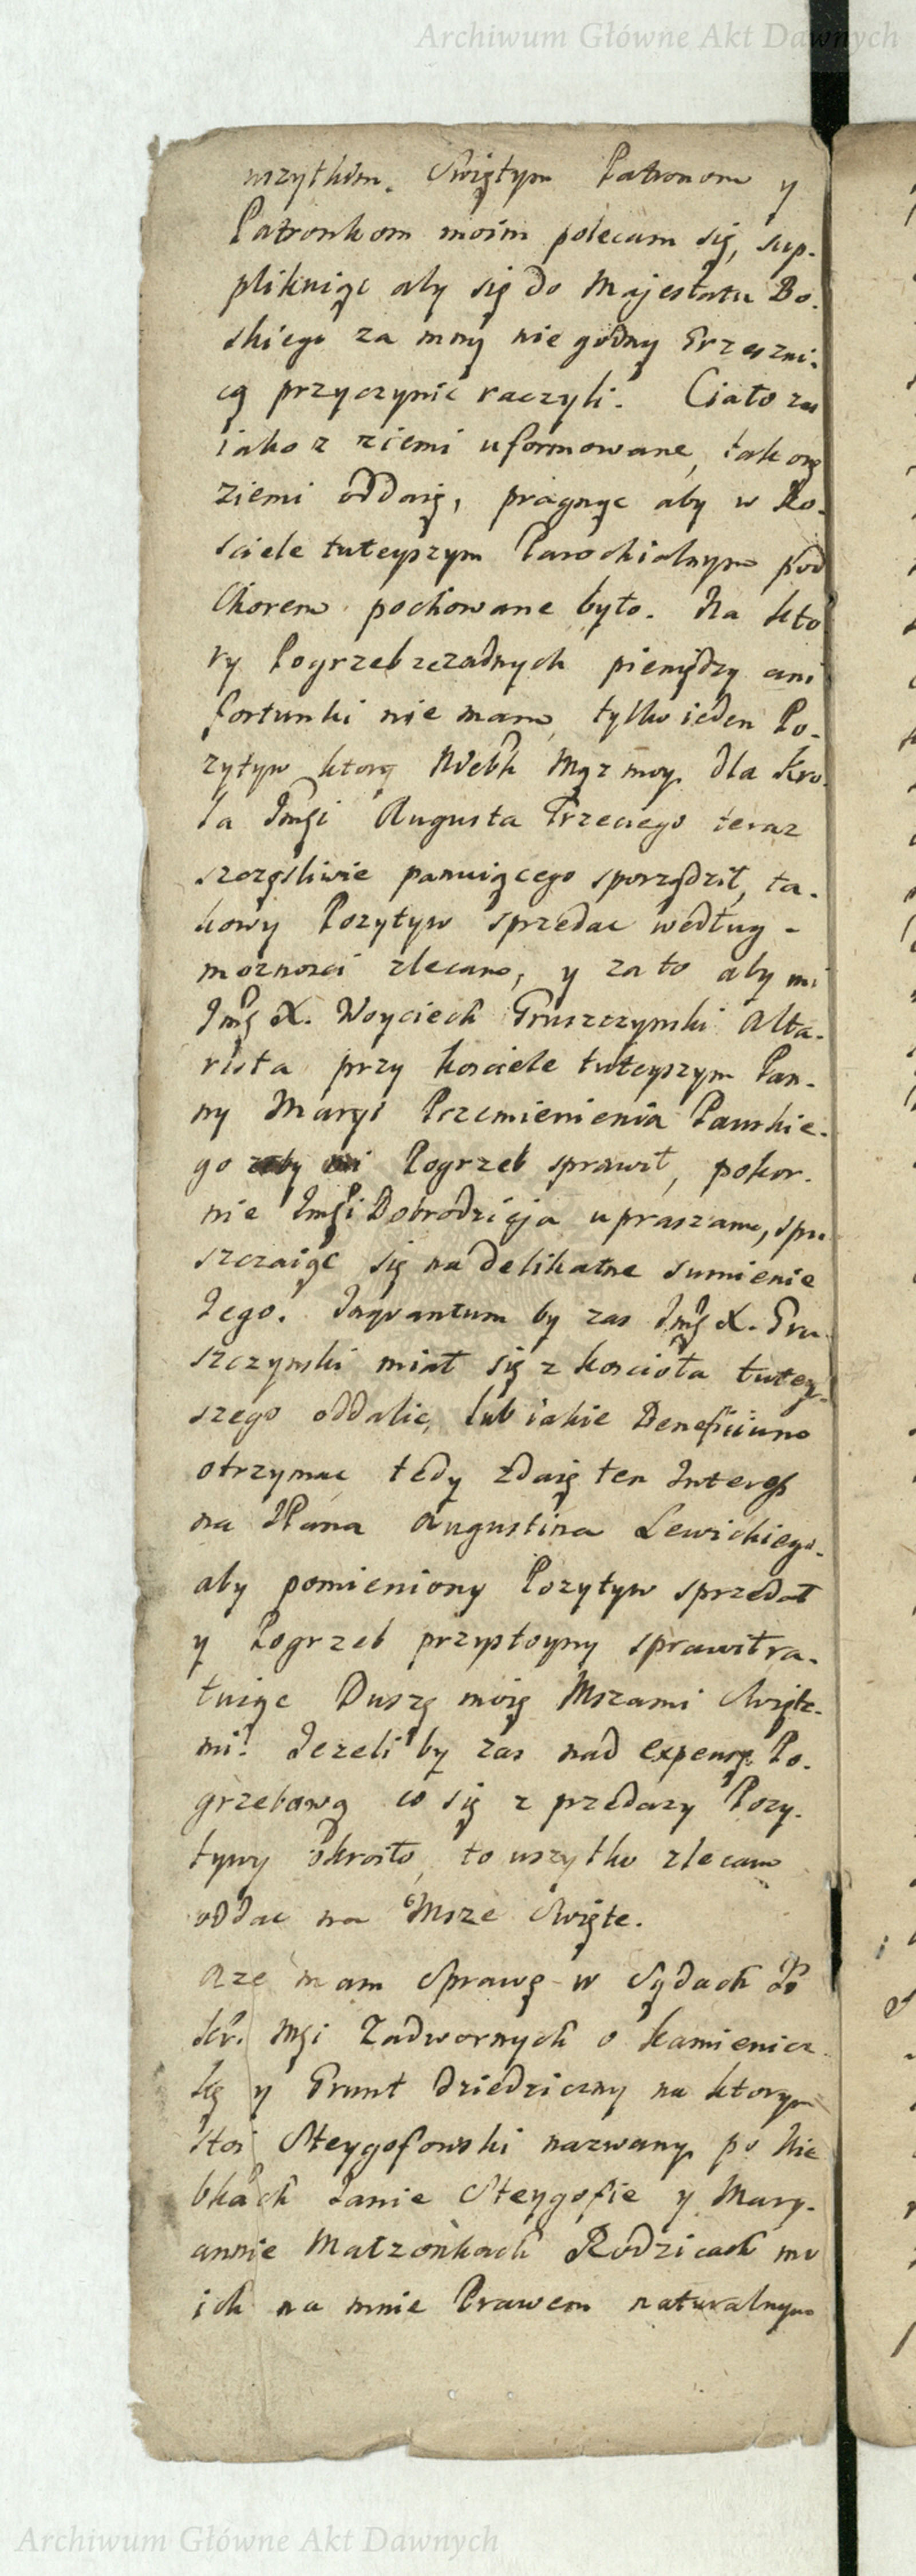 Archiwum Główne Akt Dawnych
wszytkim Swiętym Patronom y
Patronkom moim polecam się, sup-
plikuiąc aby się do Majestatu Bo-
skiego za mną nie godną Grzeszni-
cą przyczynić raczyli. Ciało zas
iako z ziemi uformowane, tak onę
ziemi oddaię, pragnąc aby w Ko-
sciele tuteyszym Parochialnym pod
Chorem pochowane było. Na kto
ry Pogrzeb zezadnych pieniędzy ani
fortunki nie mam, tylko ieden Po-
zytyw ktory Niebk Mąz moy dla Kro-
la Jmsi Augusta Trzeciego teraz
szczęsliwie panuiącego sporządził, ta-
kowy Pozytyw sprzedac według -
moznosci zlecam, y za to aby mi
Jmś X. Woyciech Gruszczynski Alta-
rista przy kosciele tuteyszym Pan-
ny Maryi Przemienienia Panskie-
go Pogrzeb sprawił, pokor-
nie Jmsi Dobrodzieja upraszam, spu
szczaiąc się na delikatne sumienie
Jego. Inquantum by zas Jmś X. Gru-
szczynski miał się z kosciola tutey-
szego oddalic, lub iakie Beneficium
otrzymac, tedy zdaię ten Interess
na JPana Augustina Lewickiego.
aby pomieniony Pozytyw sprzedał
y Pogrzeb przystoyny sprawił ra-
tuiąc Duszę moię Mszami Święte-
mi. Jezeli by zas nad expensę Po-
grzebową co się z przedazy Pozy-
tywy okroiło, to wszytko zlecam
oddac na Msze Święte.
Aze mam Sprawę w Sądach JP
Kr. Msi Zadwornych o kamienicz-
kę y Grunt dziedziczny na ktorym
stoi Steygofowski nazwany po Nie
bkach Janie Steygofie y Mary-
annie Małzonkach Rodzicach mo
ich na mnie Prawem naturalnym
Archiwum Główne Akt Dawnych